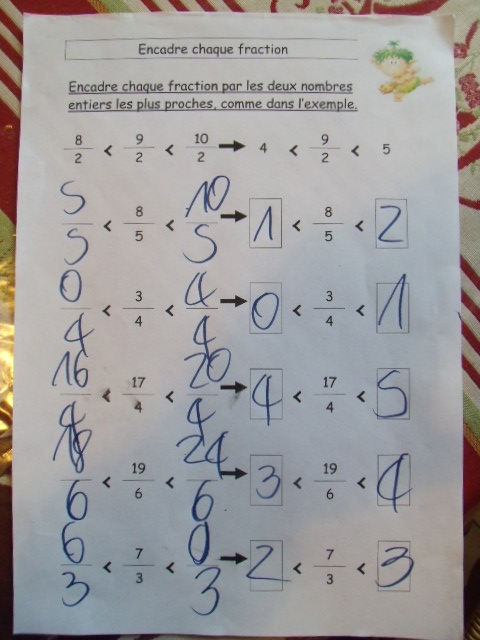 Encadre chaque fraction
Encadre chaque fraction par les deux nombres
entiers les plus proches, comme dans l'exemple.
8/2 < 9/2 < 10/2 → 4 < 9/2 < 5
5/5 < 8/5 < 10/5 → 1 < 8/5 < 2
0/4 < 3/4 < 4/4 → 0 < 3/4 < 1
16/4 < 17/4 < 20/4 → 4 < 17/4 < 5
18/6 < 19/6 < 24/6 → 3 < 19/6 < 4
6/3 < 7/3 < 0/3 → 2 < 7/3 < 3